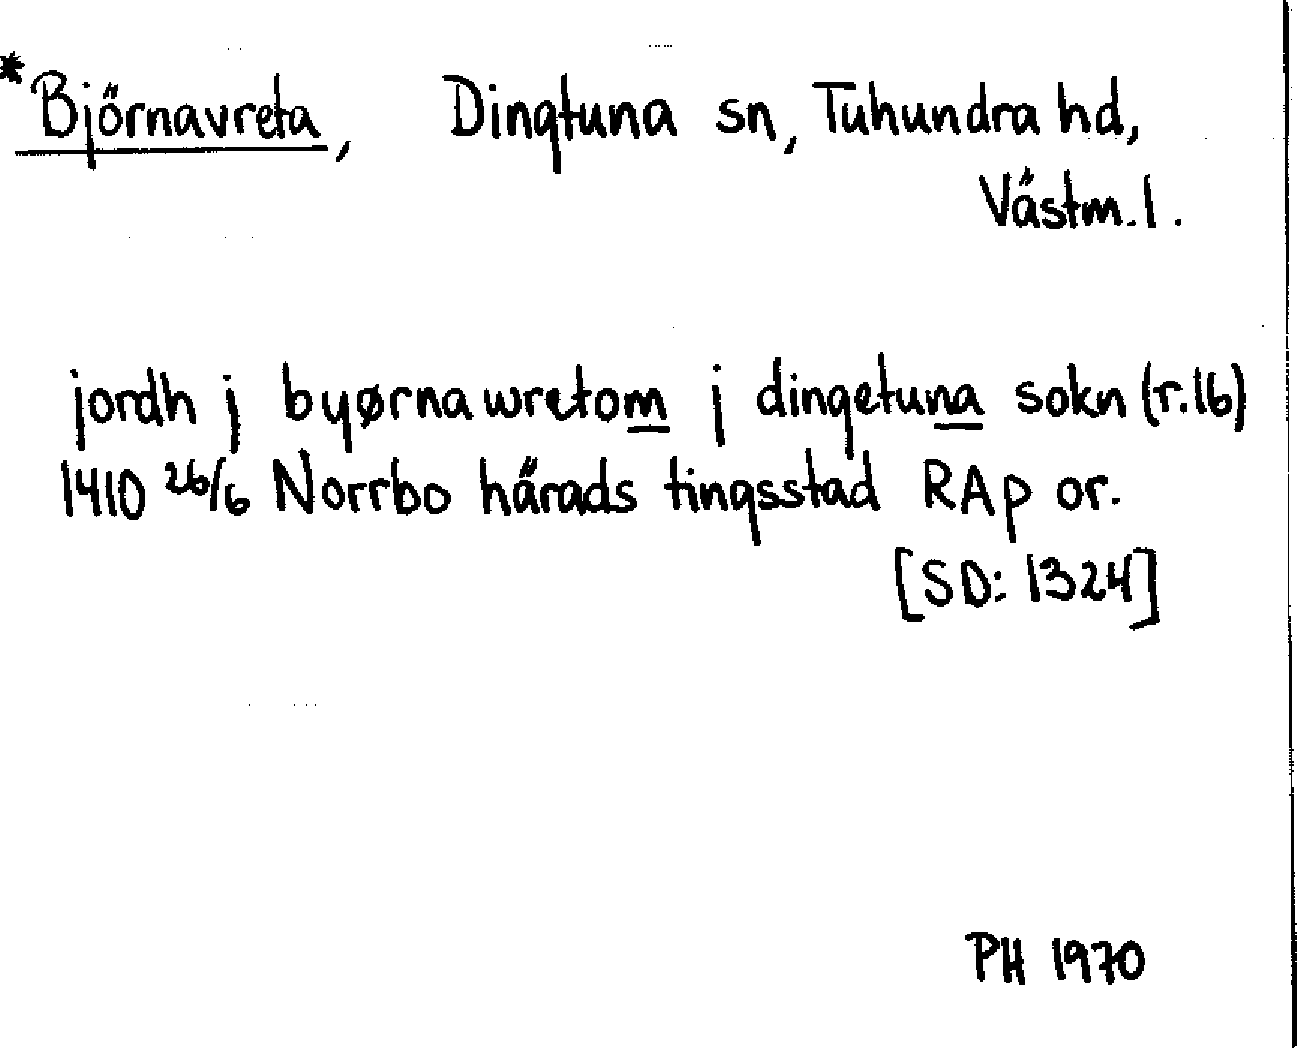 *Björnavreta, Dingtuna sn, Tuhundra hd,
Västm. l.
jordh j byørnawretom j dingetuna sokn (r.16)
1410 26/6 Norrbo härads tingsstad RAp or.
[SD: 1324]
PH 1970